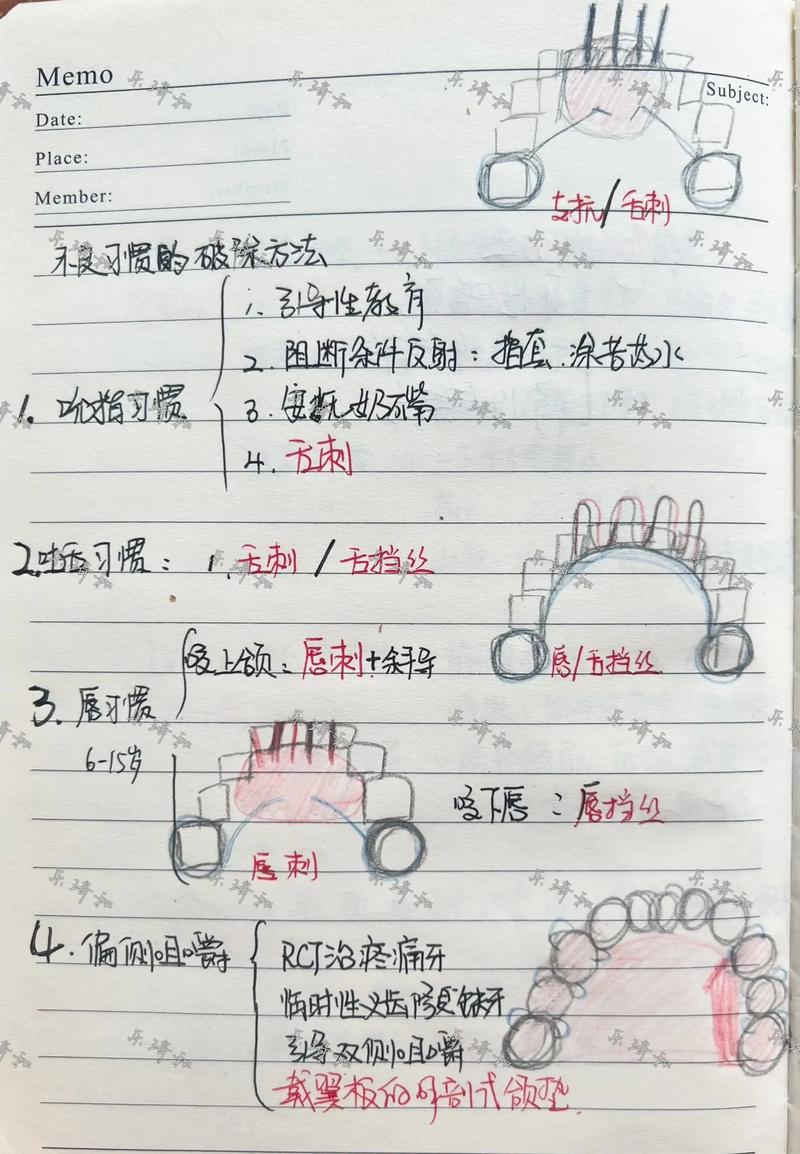 Memo
Subject:
Date:
Place:
Member:
支抗/舌刺
不良习惯的破除方法
1. 吮指习惯
1. 引导性教育
2. 阻断条件反射：指套.涂苦药水
3. 安抚奶嘴
4. 舌刺
2.吐舌习惯： 1. 舌刺 / 舌挡丝
唇/舌挡丝
3. 唇习惯
6-15岁
咬上颌：唇刺+斜导
唇刺
咬下唇：唇挡丝
4. 偏侧咀嚼
RCT治疼痛牙
临时性义齿修复缺牙
引导双侧咀嚼
戴翼板的解剖式颌垫